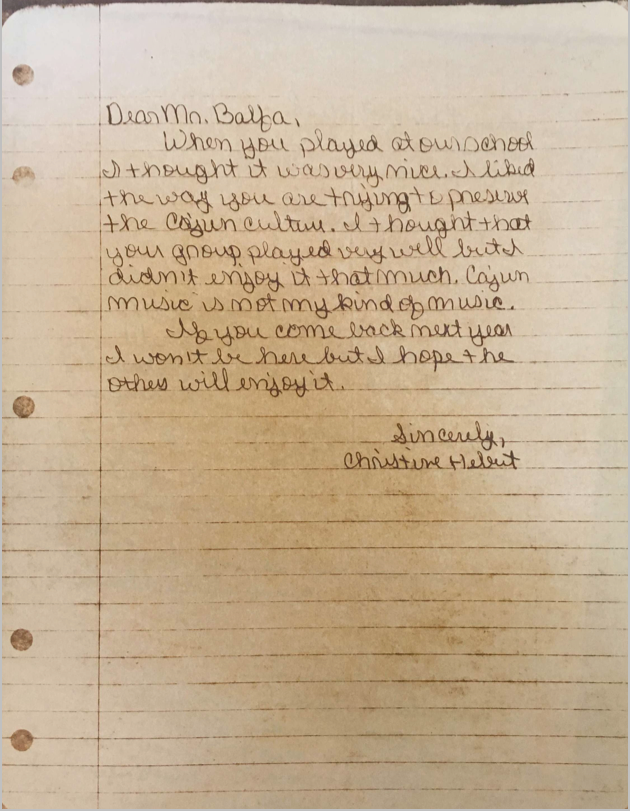 Dear Mr. Balfa,
When you played at our school
I thought it was very nice. I liked
the way you are trying to preserve
the Cajun culture. I thought that
your group played very well but I
didn't enjoy it that much. Cajun
music is not my kind of music.
If you come back next year
I won't be here but I hope the
others will enjoy it.
Sincerely,
Christine Hebert